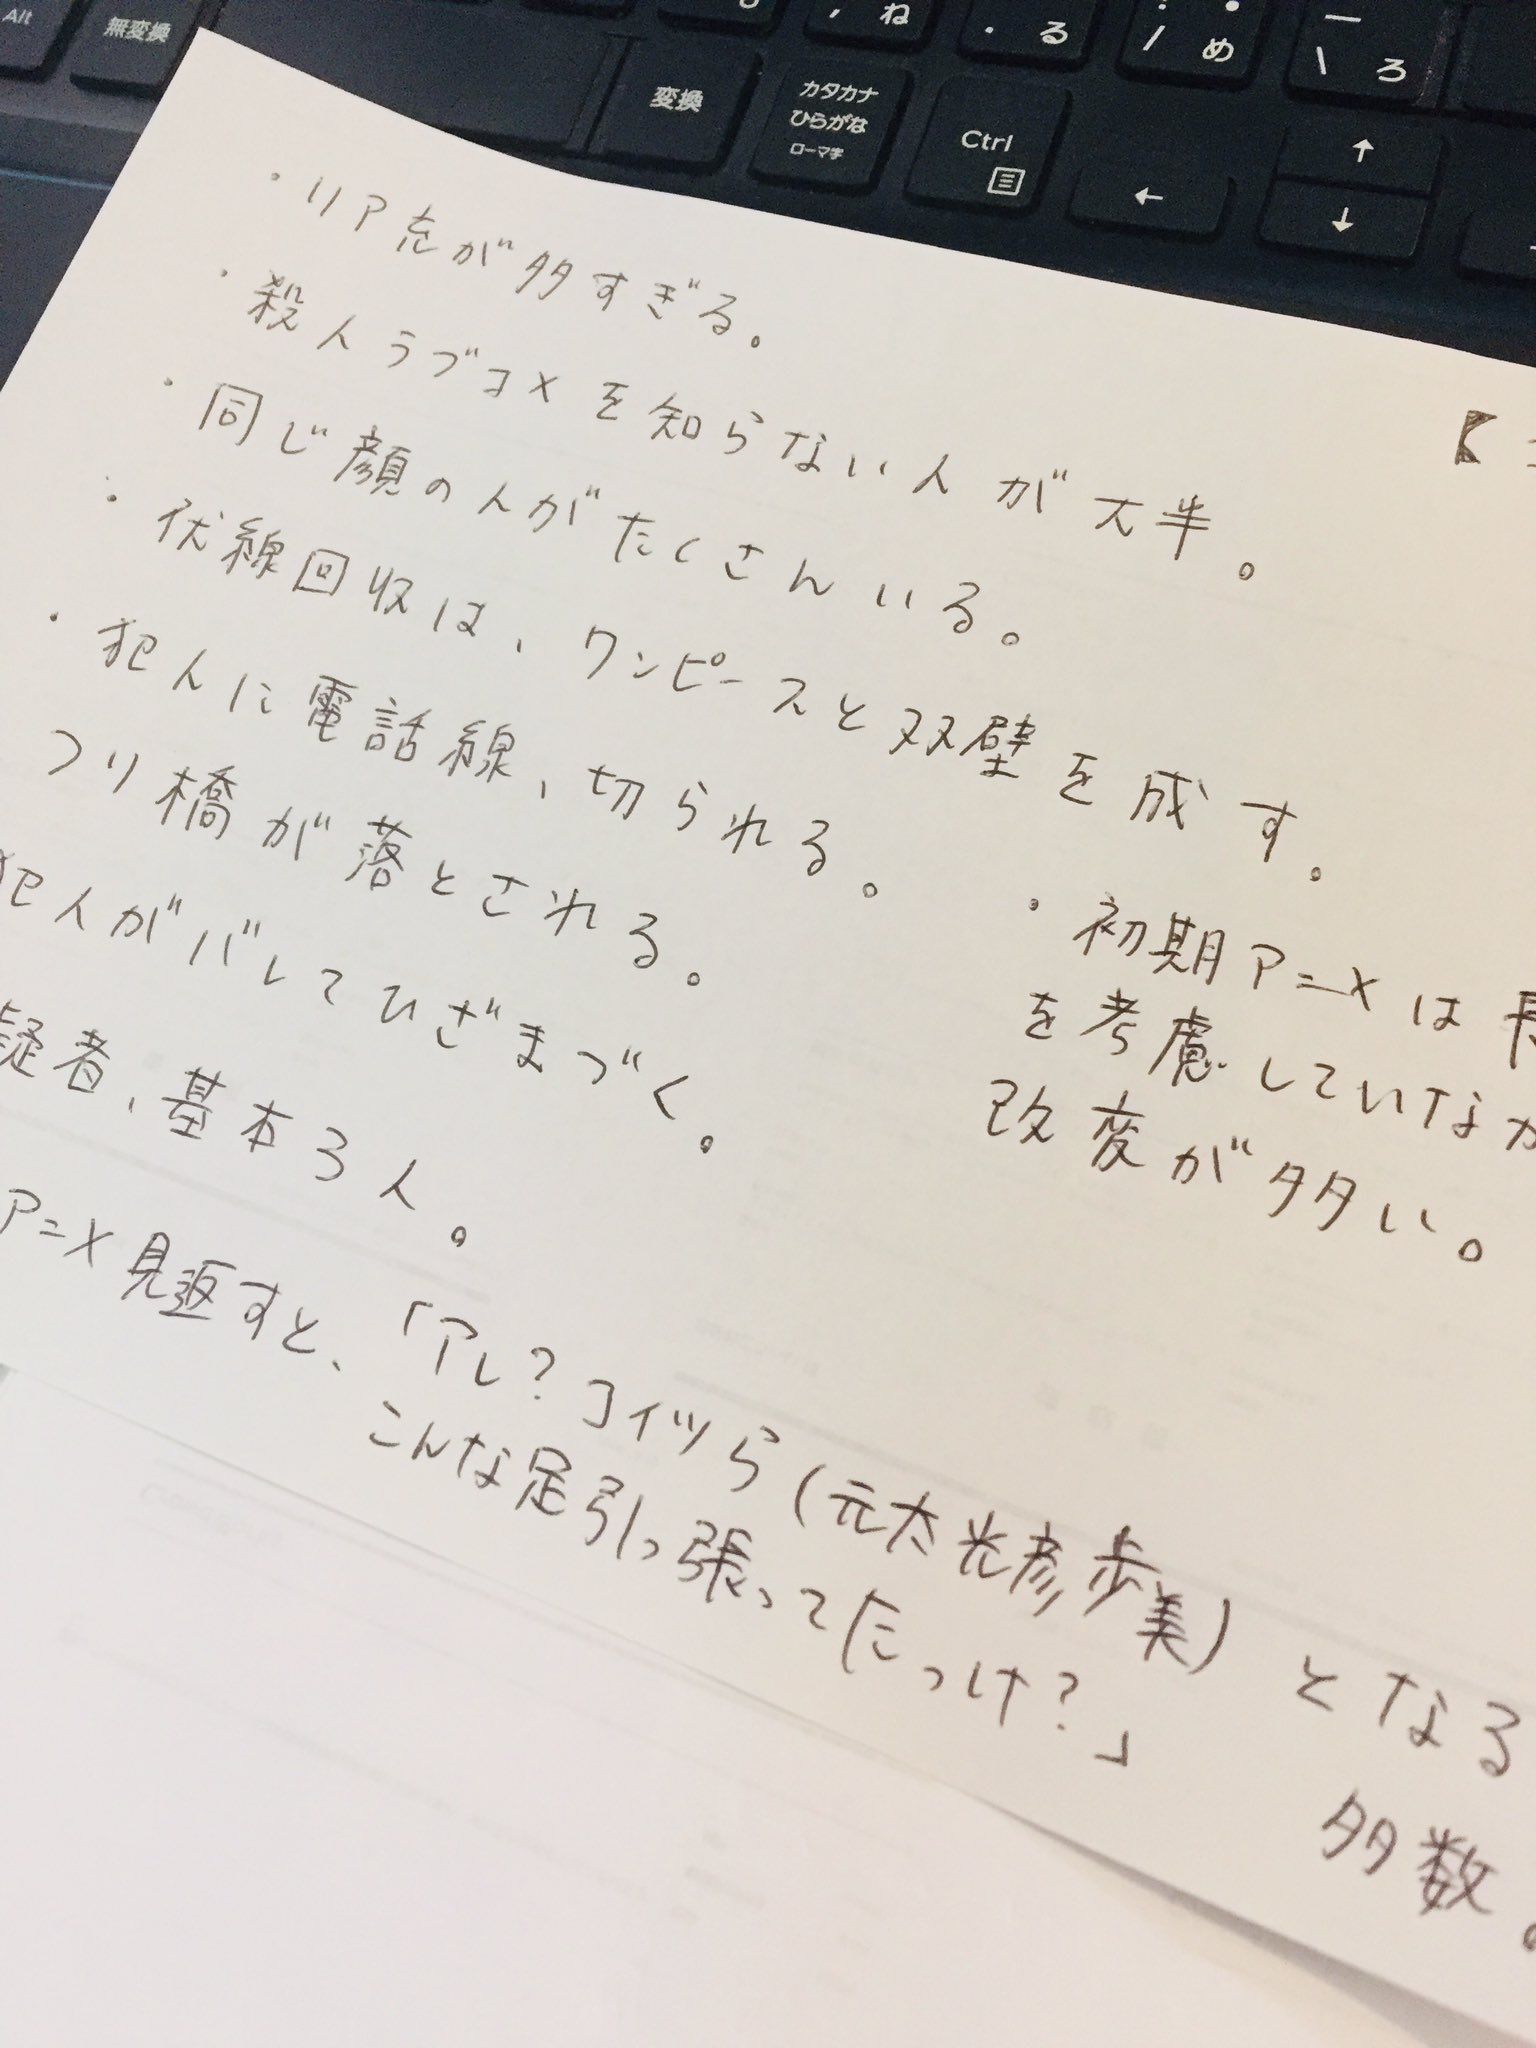 Alt
無変換
変換
カタカナ
ひらがな
ローマ字
Ctrl
←
↑
↓
, ね
. る
/ め
\ ろ
・リア充が多すぎる。
・殺人ラブコメを知らない人が大半。
・同じ顔の人がたくさんいる。
・伏線回収は、ワンピースと双璧を成す。
・犯人に電話線、切られる。
つり橋が落とされる。
犯人がバレてひざまづく。
疑者、基本3人。
アニメ見返すと、「アレ?コイツら(元太光彦歩美)
こんな足引っ張ってたっけ?」
となる
多数。
【
・初期アニメは長
を考慮していなか
改変が多い。